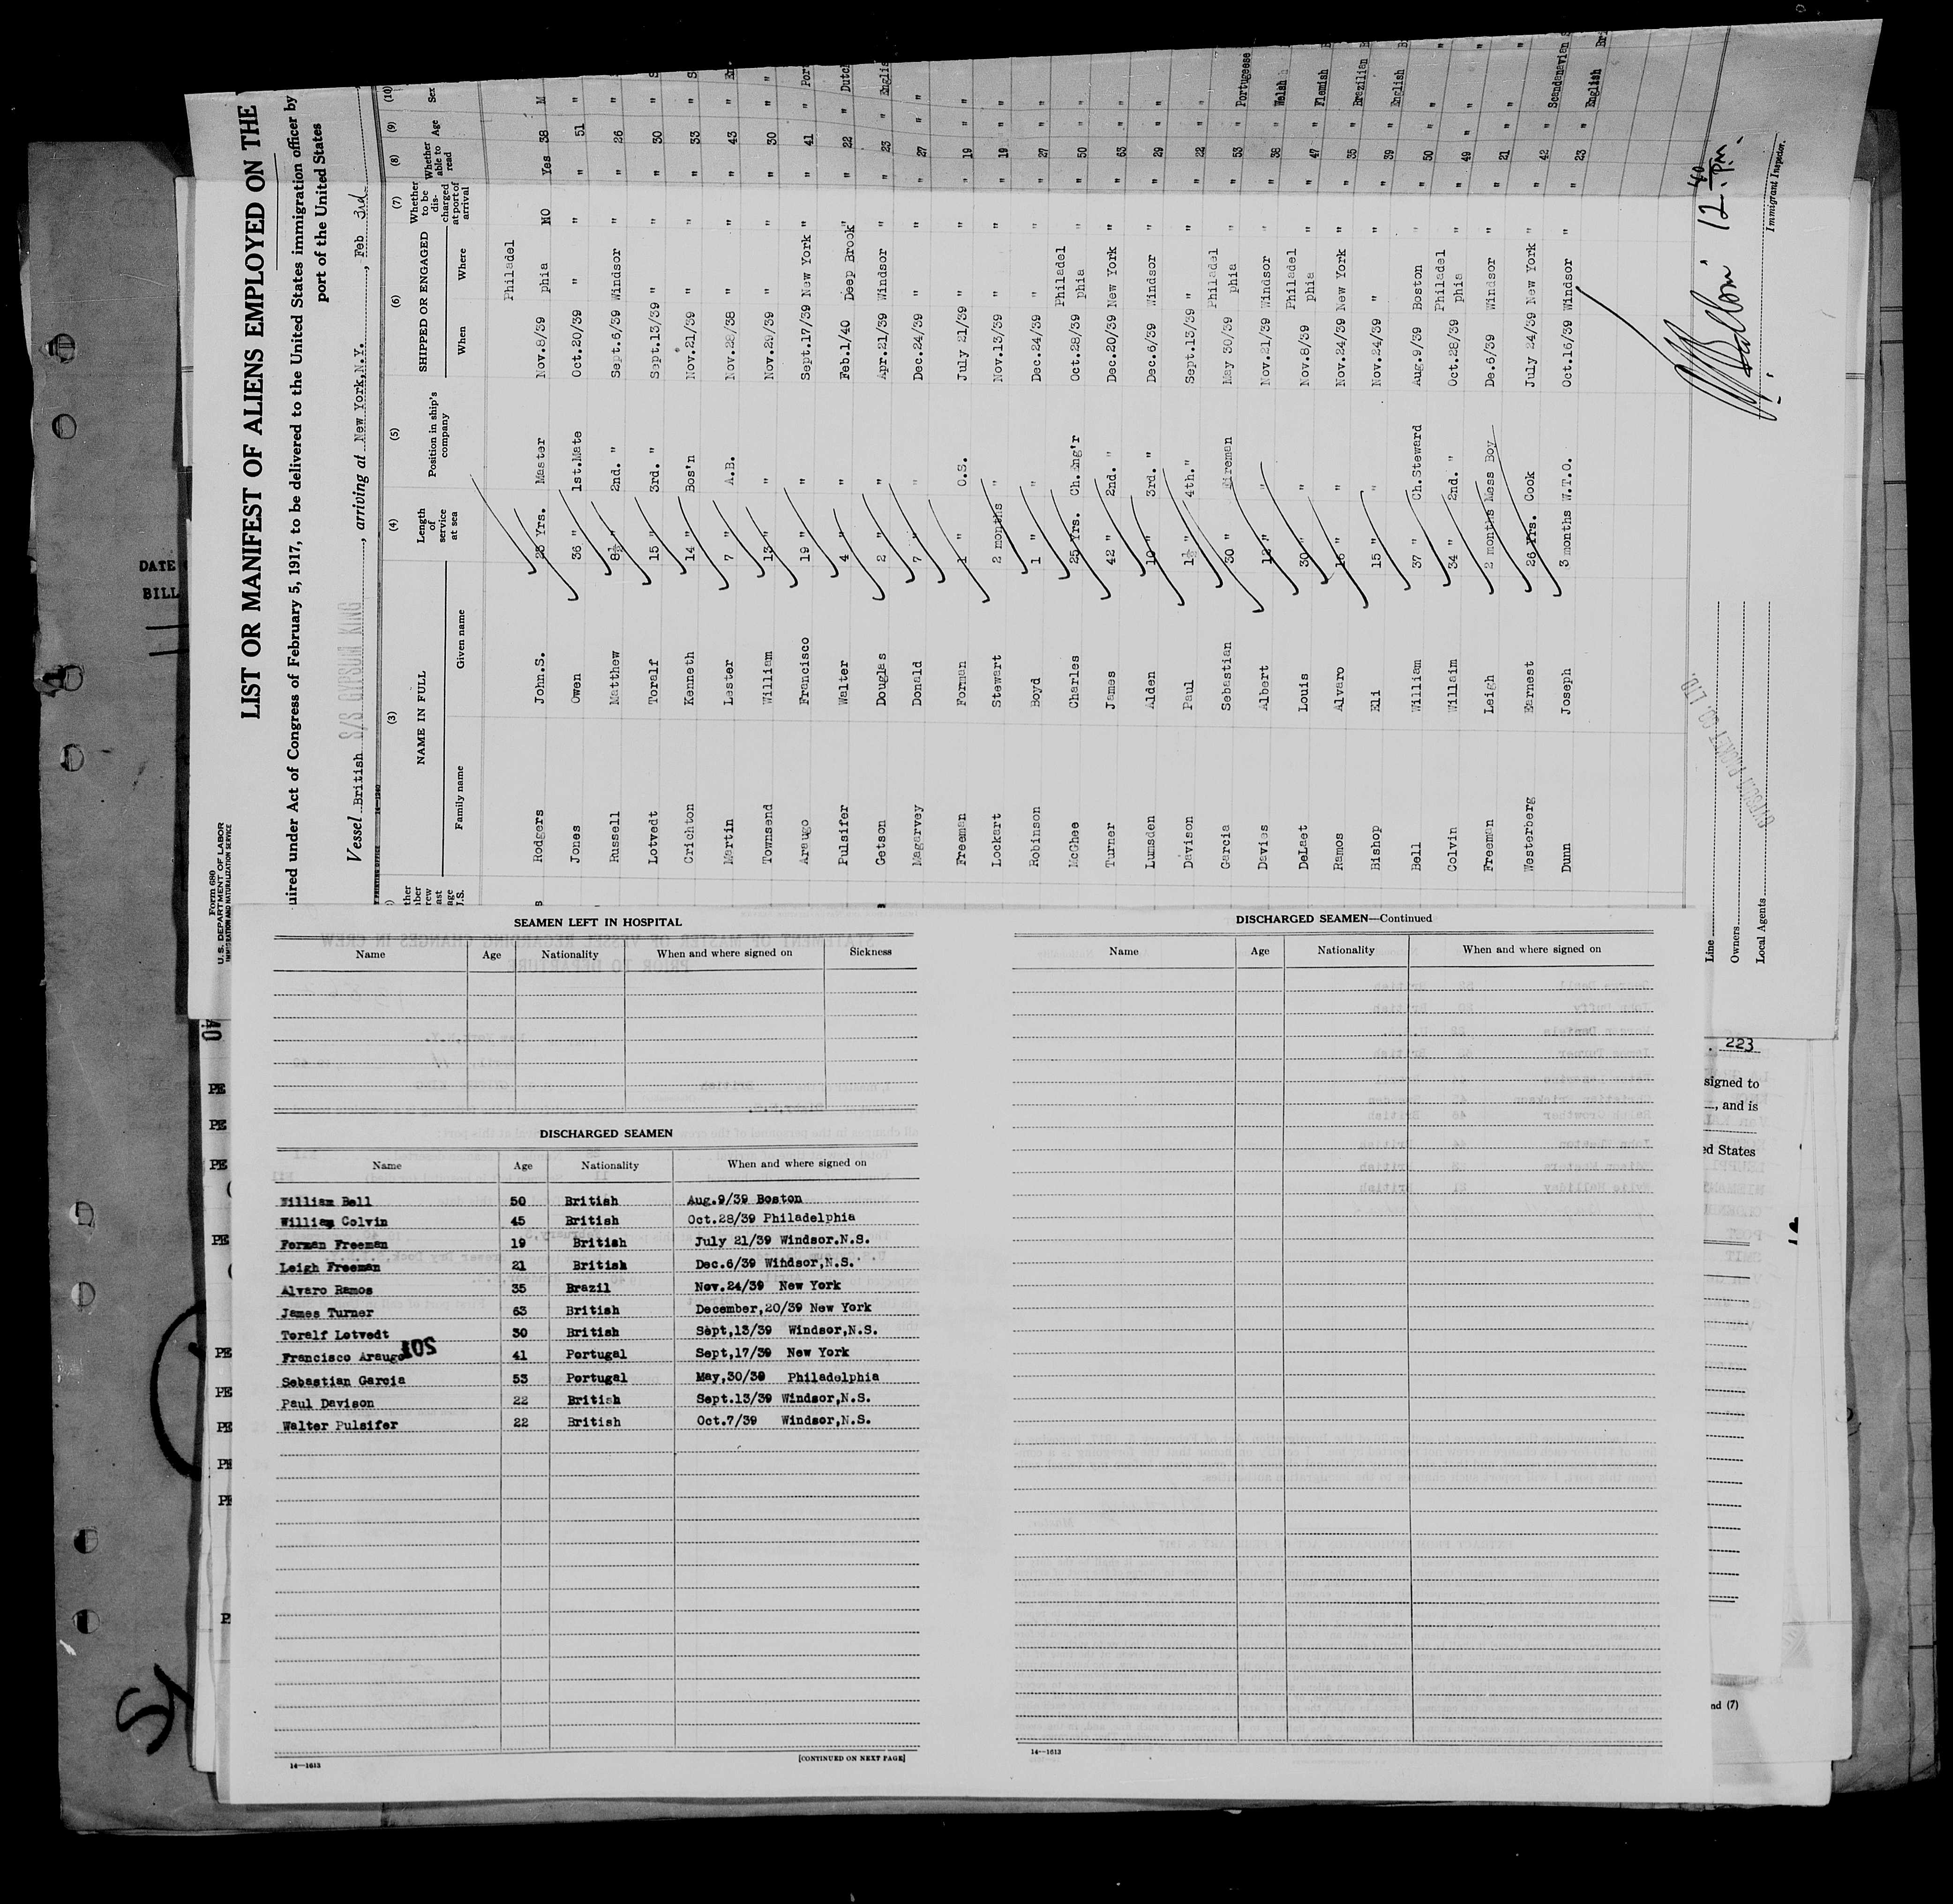 Form 680
U.S. DEPARTMENT OF LABOR
IMMIGRATION AND NATURALIZATION SERVICE
LIST OR MANIFEST OF ALIENS EMPLOYED ON THE
uired under Act of Congress of February 5, 1917, to be delivered to the United States immigration officer by
port of the United States
Vessel British S/S GYPSUM KING, arriving at New York,N.Y., Feb 3rd
(3) (4) (5) (6) (7) (8) (9) (10)
NAME IN FULL Length of service at sea Position in ship's company SHIPPED OR ENGAGED Whether to be discharged at port of arrival Whether able to read Age Sex
Family name Given name When Where
Philadel
Rodgers John.S. 23 Yrs. Master Nov.8/39 phia NO Yes 38 M
Jones Owen 36 " 1st.Mate Oct.20/39 " " " 51 "
Russell Matthew 8½ " 2nd. " Sept.6/39 Windsor " " 26 "
Lotvedt Toralf 15 " 3rd. " Sept.13/39 " " " 30 " S
Crichton Kenneth 14 " Bos'n Nov.21/39 " " " 33 " S
Martin Lester 7 " A.B. Nov.28/38 " " " 43 " En
Townsend William 13 " " Nov.29/39 " " " 30 " "
Araugo Francisco 19 " " Sept.17/39 New York " " 41 " Por
Pulsifer Walter 4 " " Feb.1/40 Deep Brook " " 22 " Dutch
Getson Douglas 2 " " Apr.21/39 Windsor " " 23 " Englis
Magarvey Donald 7 " " Dec.24/39 " " " 27 " "
Freeman Forman 1 " O.S. July 21/39 " " " 19 " "
Lockart Stewart 2 months " Nov.13/39 " " " 19 " "
Robinson Boyd 1 " " Dec.24/39 " " " 27 " "
Philadel
McGhee Charles 25 Yrs. Ch.Eng'r Oct.28/39 phia " " 50 " "
Turner James 42 " 2nd. " Dec.20/39 New York " " 63 " "
Lumsden Alden 10 " 3rd. " Dec.6/39 Windsor " " 29 " "
Davison Paul 1½ " 4th." Sept.13/39 " " " 22 " "
Philadel
Garcia Sebastian 30 " Fireman May 30/39 phia " " 53 " Portugeese
Davies Albert 12 " " Nov.21/39 Windsor " " 38 " Welsh
Philadel
DeLaet Louis 30 " " Nov.8/39 phia " " 47 " Flemish B
Ramos Alvaro 16 " " Nov.24/39 New York " " 35 " Brazilian B
Bishop Eli 15 " " Nov.24/39 " " " 39 " English B
Bell William 37 " Ch.Steward Aug.9/39 Boston " " 50 " "
Philadel
Colvin Willaim 34 " 2nd. " Oct.28/39 phia " " 49 " "
Freeman Leigh 2 months Mess Boy De.6/39 Windsor " " 21 " "
Westerberg Earnest 26 Yrs. Cook July 24/39 New York " " 42 " Scandanavian
Dunn Joseph 3 months W.T.O. Oct.16/39 Windsor " " 23 " English Br
12 40 P.M.
Immigrant Inspector.
Line
Owners
Local Agents
DATE
BILL
SEAMEN LEFT IN HOSPITAL
Name Age Nationality When and where signed on Sickness
DISCHARGED SEAMEN
Name Age Nationality When and where signed on
William Bell 50 British Aug.9/39 Boston
William Colvin 45 British Oct.28/39 Philadelphia
Forman Freeman 19 British July 21/39 Windsor.N.S.
Leigh Freeman 21 British Dec.6/39 Windsor,N.S.
Alvaro Ramos 35 Brazil Nov.24/39 New York
James Turner 63 British December,20/39 New York
Toralf Lotvedt 30 British Sept,13/39 Windsor,N.S.
Francisco Araugo 41 Portugal Sept,17/39 New York
Sebastian Garcia 53 Portugal May,30/39 Philadelphia
Paul Davison 22 British Sept.13/39 Windsor,N.S.
Walter Pulsifer 22 British Oct.7/39 Windsor,N.S.
14—1613 [CONTINUED ON NEXT PAGE]
DISCHARGED SEAMEN—Continued
Name Age Nationality When and where signed on
14—1613
223
signed to
, and is
ed States
nd (7)